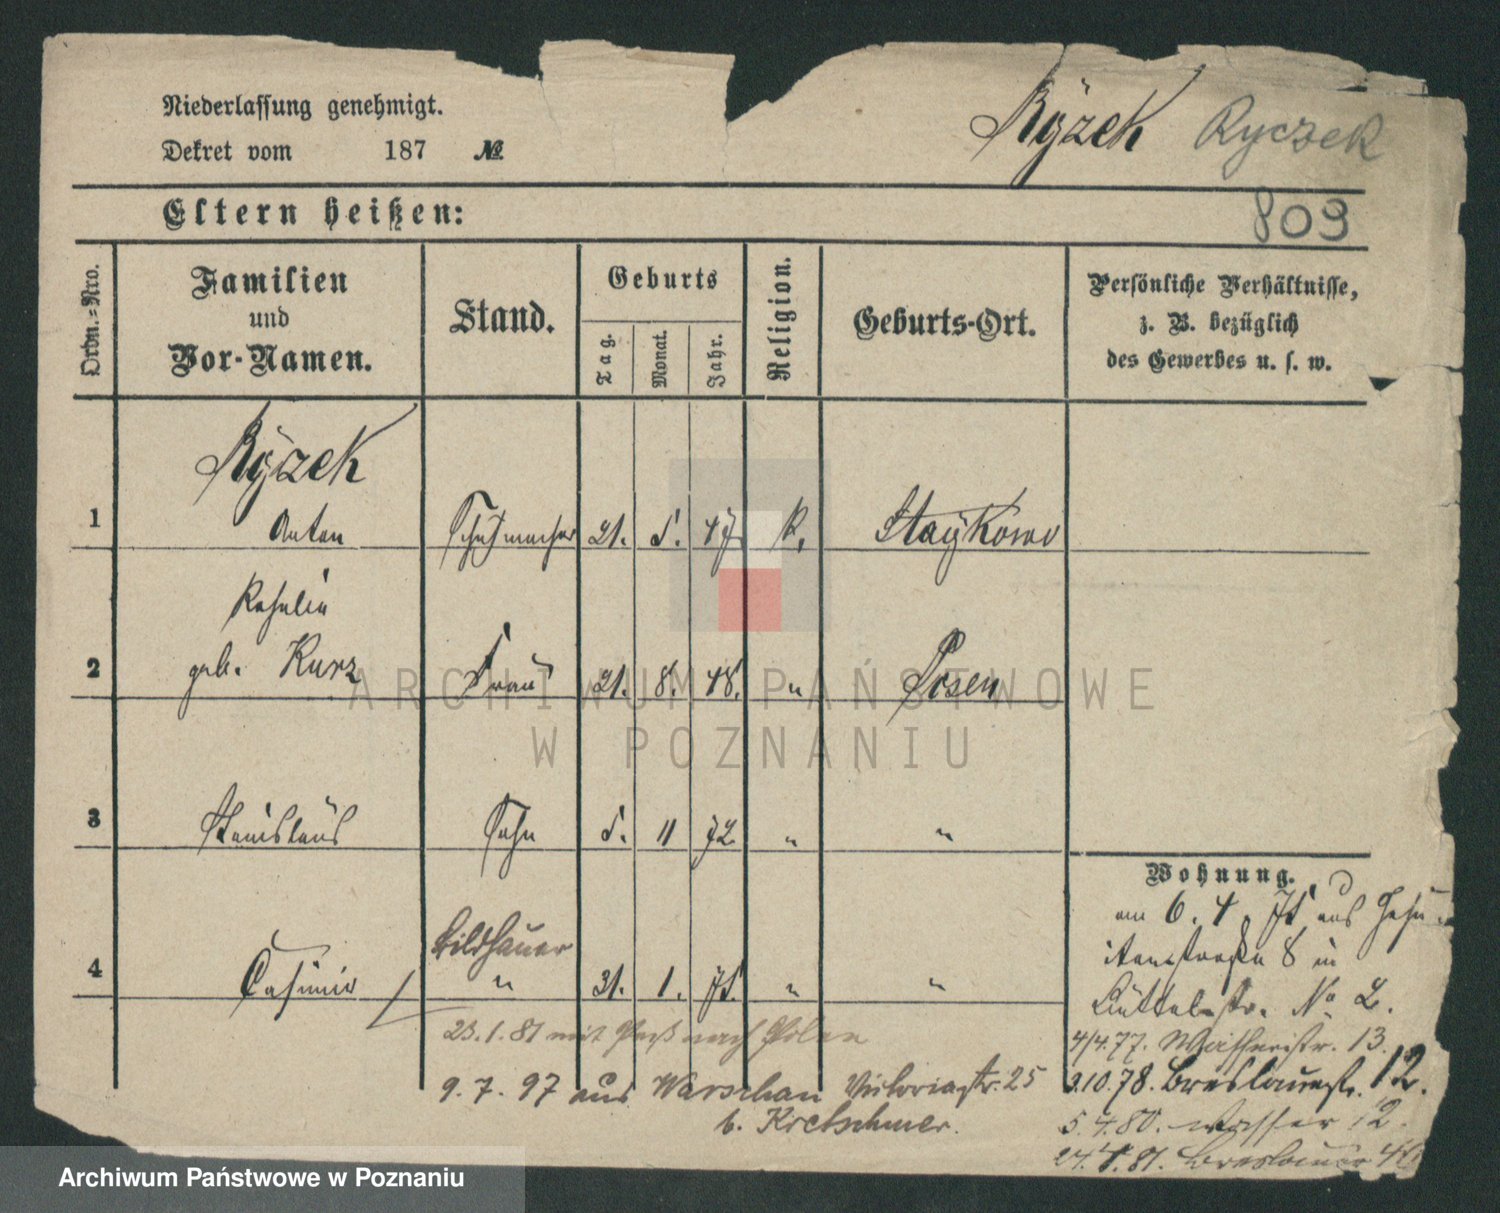 Niederlassung genehmigt.
Dekret vom 187 №
Rÿzek Ryczek
Eltern heißen:
809
Ordn.=Nro.
Familien
und
Vor-Namen.
Stand.
Geburts
Tag.
Monat.
Jahr.
Religion.
Geburts-Ort.
Persönliche Verhältnisse,
z. B. bezüglich
des Gewerbes u. s. w.
Rÿzek
1 Anton Schuhmacher 21. 5. 47 K.
Rosalia
2 geb. Kurz Frau 21. 8. 48. " Posen
3 Stanislaus Sohn 5. 11 72 " "
Bildhauer
4 Casimir " 31. 1. 75 " "
Wohnung.
am 6. 4. 75 aus Jesu-
itenstraße 8 in
Büttelstr. No 2.
4/4.77. 13.
3.10.78. Breslauerstr. 12.
5.4.80. Wasser 12.
24.4.81. Breslauer
23.1.81 mit Paß nach Polen
9.7.97 aus Warschau Victoriastr. 25
b. Kretschmer.
ARCHIWUM PAŃSTWOWE
W POZNANIU
Archiwum Państwowe w Poznaniu